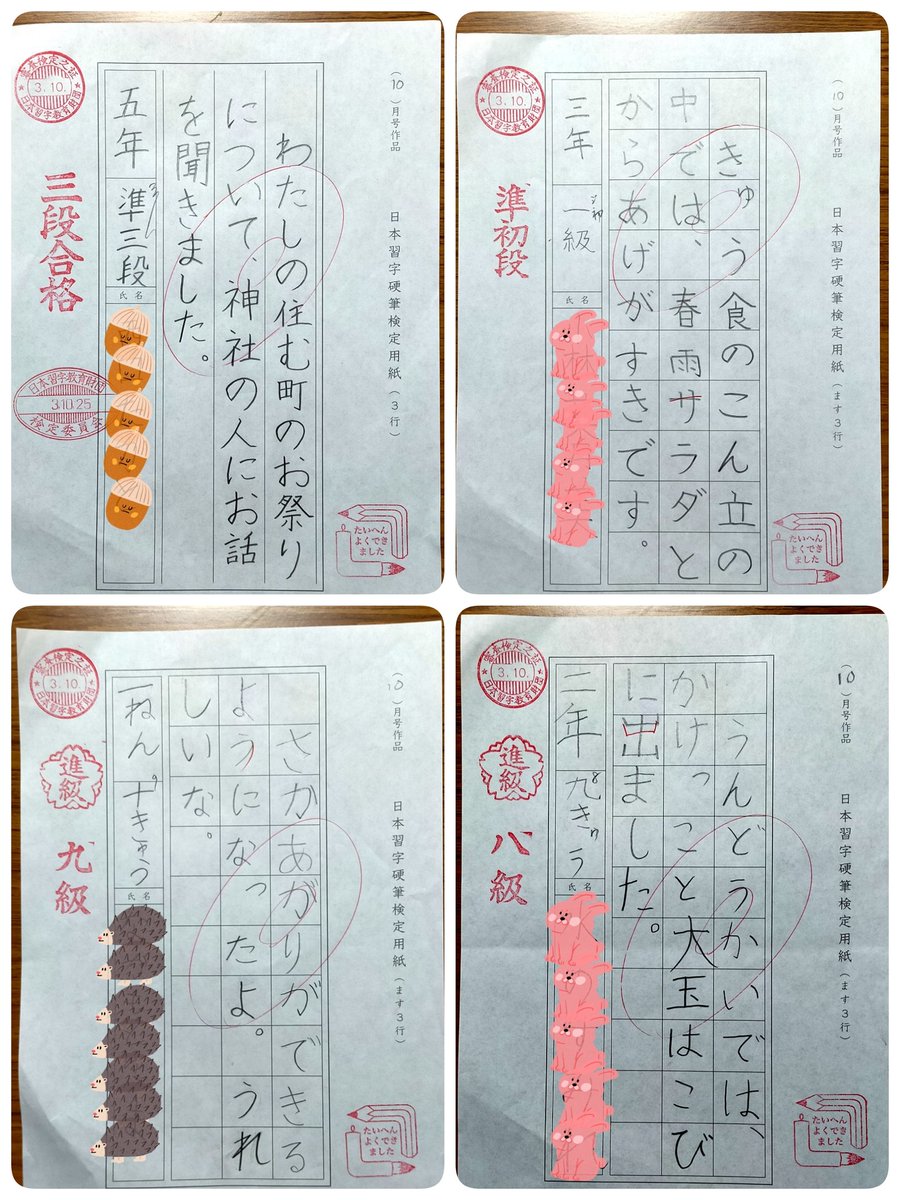 (10)月号作品
日本習字硬筆検定用紙(3行)
わたしの住む町のお祭り
について、神社の人にお話
を聞きました。
五年
準三段
氏名
3.10.
日本習字教育財団
三段合格
日本習字教育財団
3.10.25
検定委員会
たいへん
よくでき
ました
(10)月号作品
日本習字硬筆検定用紙(ます3行)
きゅう食のこん立の
中では、春雨サラダと
からあげがすきです。
三年
一級
氏名
3.10.
日本習字教育財団
準初段
たいへん
よくでき
ました
(10)月号作品
日本習字硬筆検定用紙(ます3行)
さかあがりができる
ようになったよ。うれ
しいな。
一ねん
十きゅう
氏名
3.10.
日本習字教育財団
進級
九級
たいへん
よくでき
ました
(10)月号作品
日本習字硬筆検定用紙(ます3行)
うんどうかいでは、
かけっこと大玉はこび
に出ました。
二年
九きゅう
氏名
3.10.
日本習字教育財団
進級
八級
たいへん
よくでき
ました